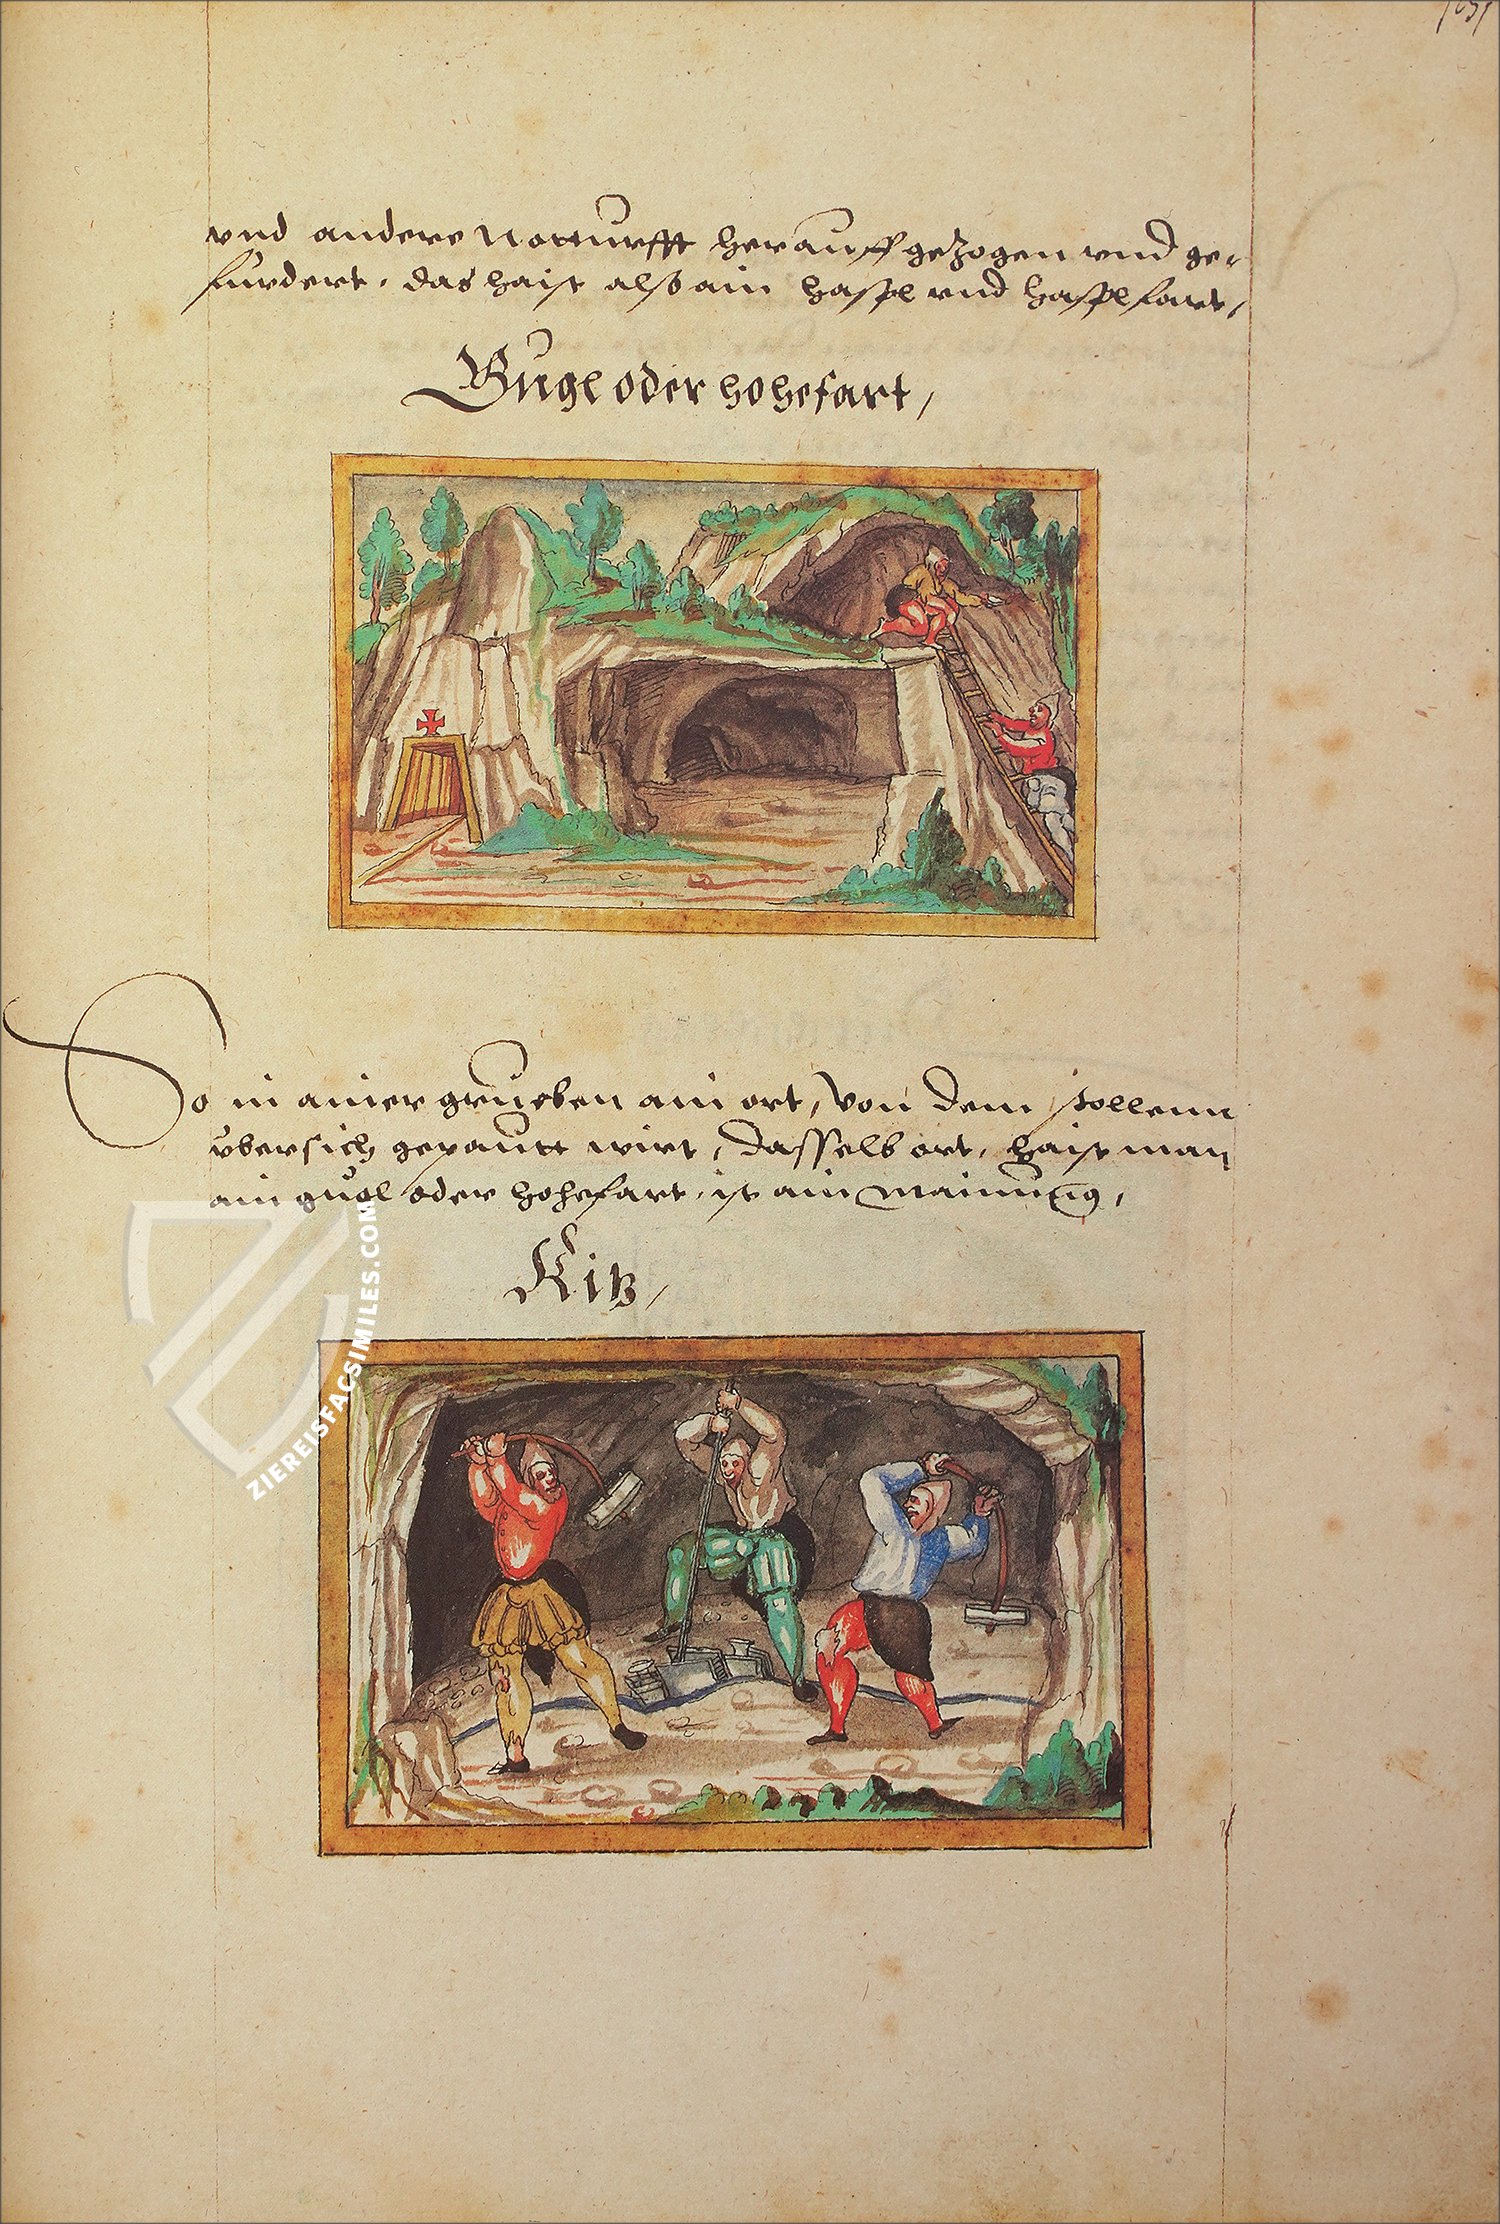 vnd andere Notturfft herauff gezogen vnd ge-
furdert, das haist alß ain haspl vnd hasplfart,
Gugl oder hohefart,
So in ainer grueben ain ort, von dem stollenn
vbersich gepautt wirt, dasselb ort, haist man
ain gugl oder hohefart, ist ain mainung,
Kitz,
ZIEREISFACSIMILES.COM